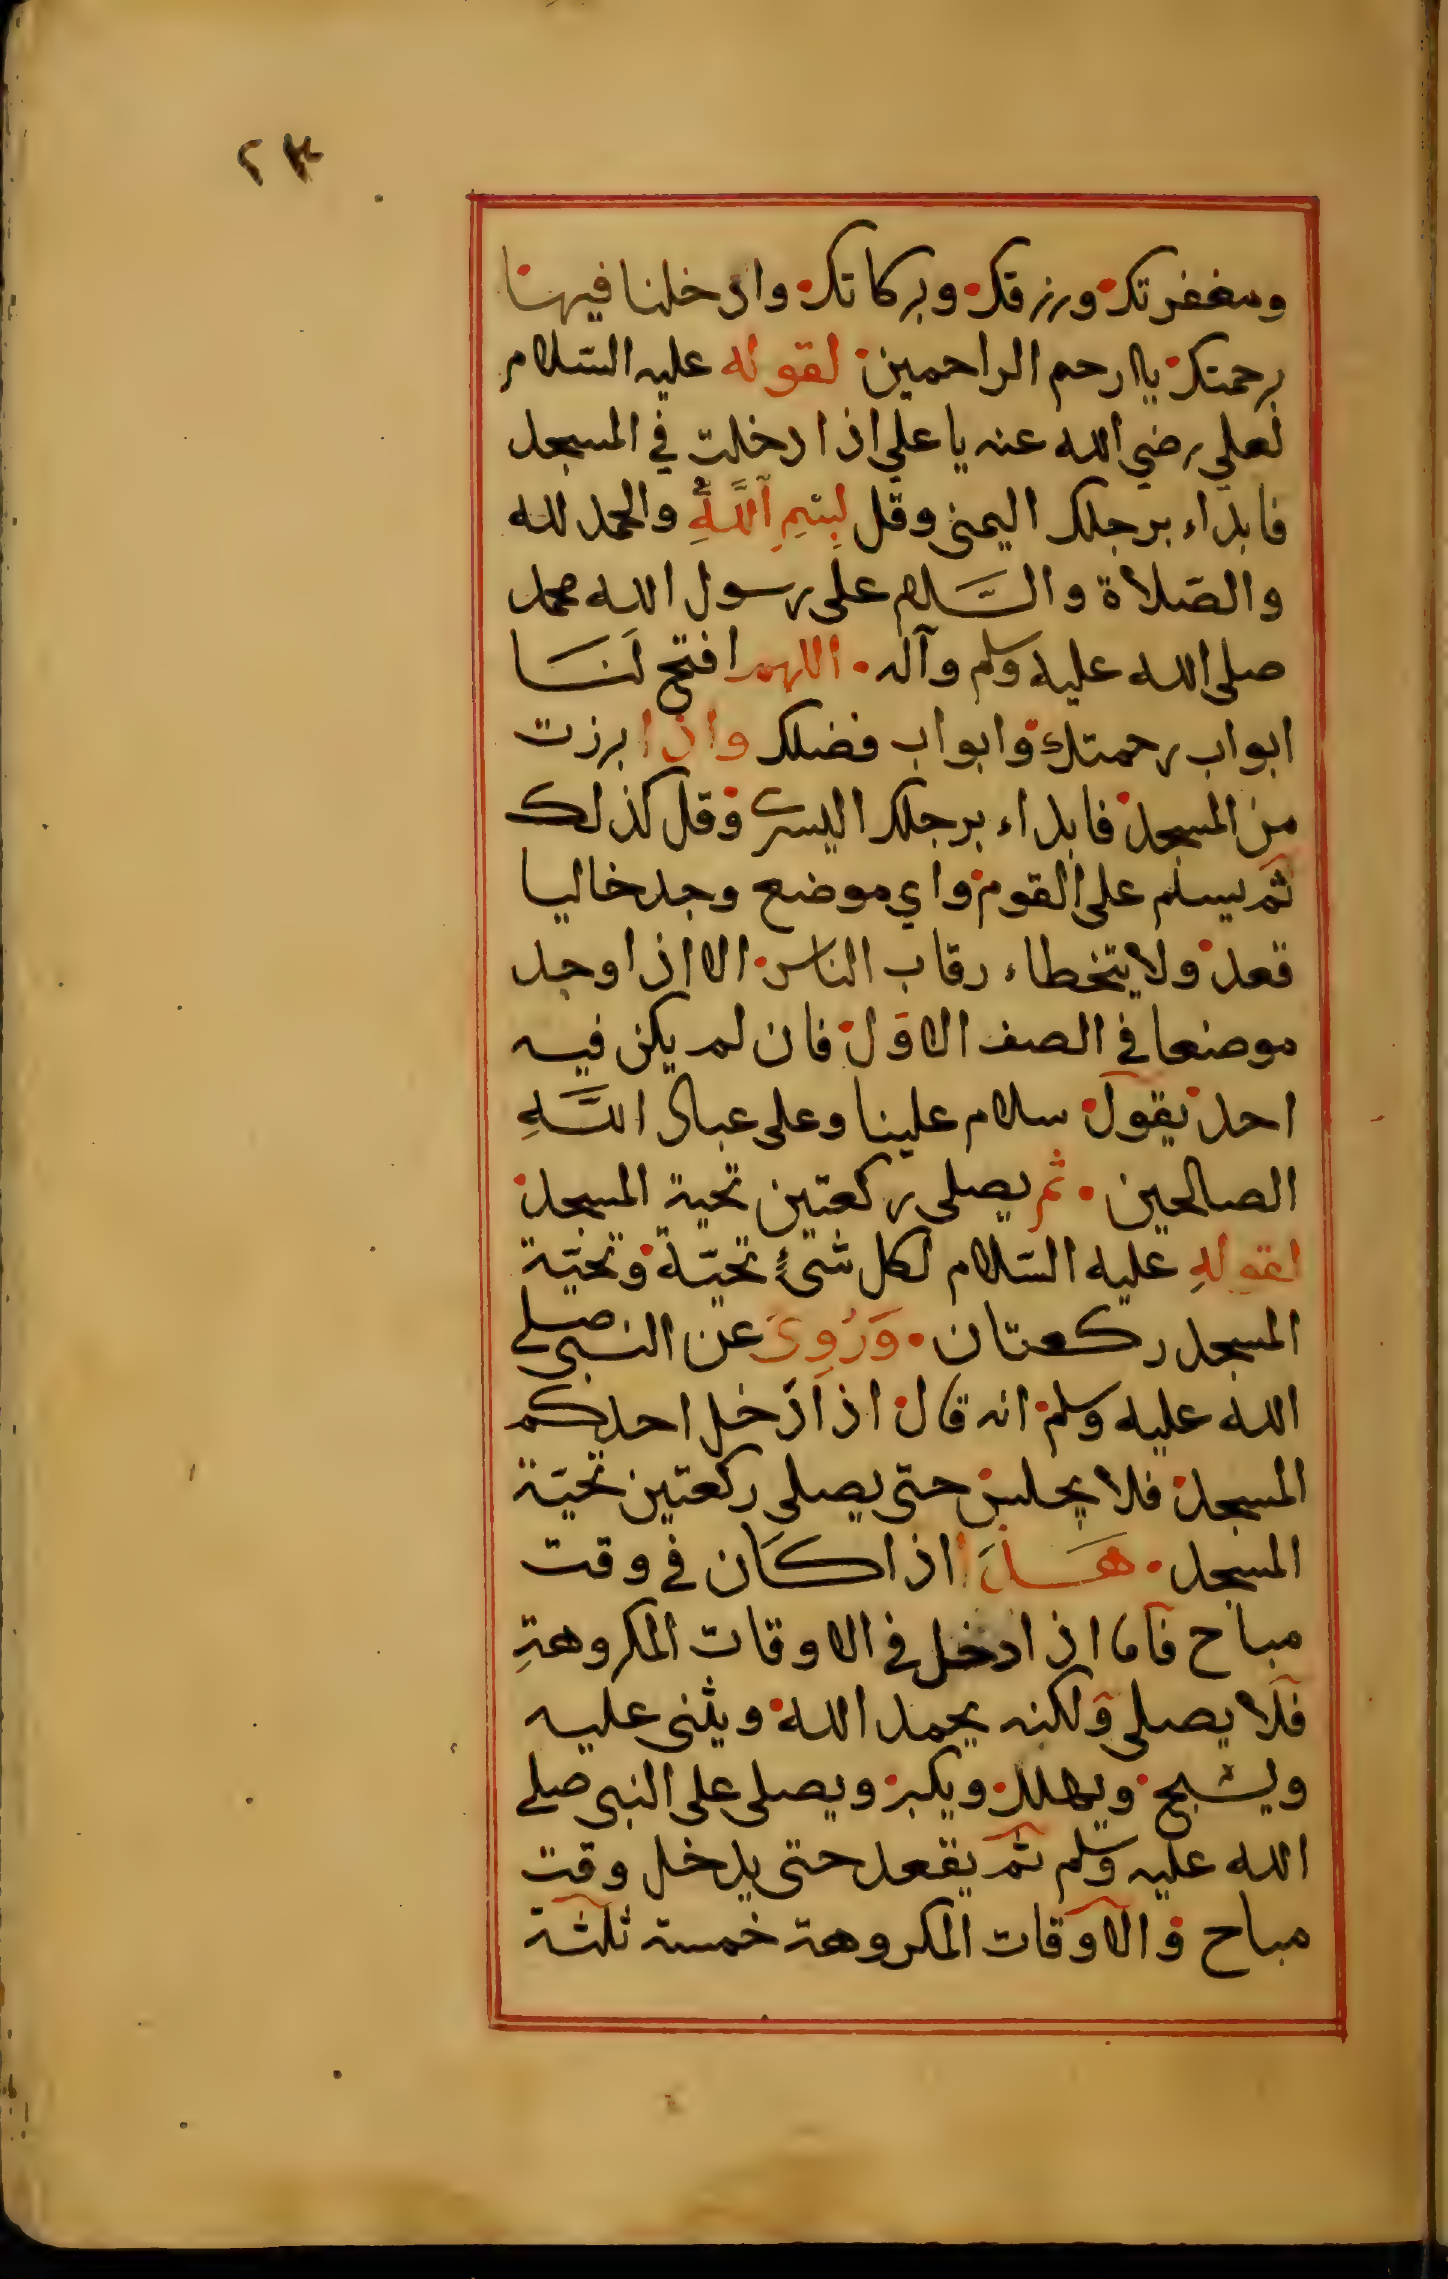 ٢٣
ومغفرتك ورزقك وبركاتك وادخلنا فيها
برحمتك يا ارحم الراحمين لقوله عليه السّلام
لعلي رضي الله عنه يا علي اذا دخلت في المسجد
فابداء برجلك اليمنى وقل بِسْمِ اللَّهِ والحمد لله
والصّلاة والسَّلام على رسول الله محمد
صلى الله عليه وسلم وآله اللهم افتح لَنَا
ابواب رحمتك وابواب فضلك واذا برزت
من المسجد فابداء برجلك اليسرى وقل كذلك
ثم يسلم على القوم واي موضع وجد خاليا
قعد ولا يتخطاء رقاب الناس الا اذا وجد
موضعا في الصف الاوّل فان لم يكن فيه
احد يقول سلام علينا وعلى عباد اللَّهِ
الصالحين ثم يصلى ركعتين تحية المسجد
لقولِهِ عليه السّلام لكل شئٍ تحيّة وتحيّة
المسجد ركعتان وَرُوِىَ عن النبى صلى
الله عليه وسلم انه قال اذا دخل احدكم
المسجد فلا يجلس حتى يصلى ركعتين تحيّة
المسجد هَذَا اذا كَان في وقت
مباح فاما اذا دخل في الاوقات المكروهةِ
فلا يصلى ولكنه يحمد الله ويثنى عليه
ويسبح ويهلل ويكبر ويصلى على النبى صلى
الله عليه وسلم ثم يقعد حتى يدخل وقت
مباح والاوقات المكروهة خمسة ثلثة